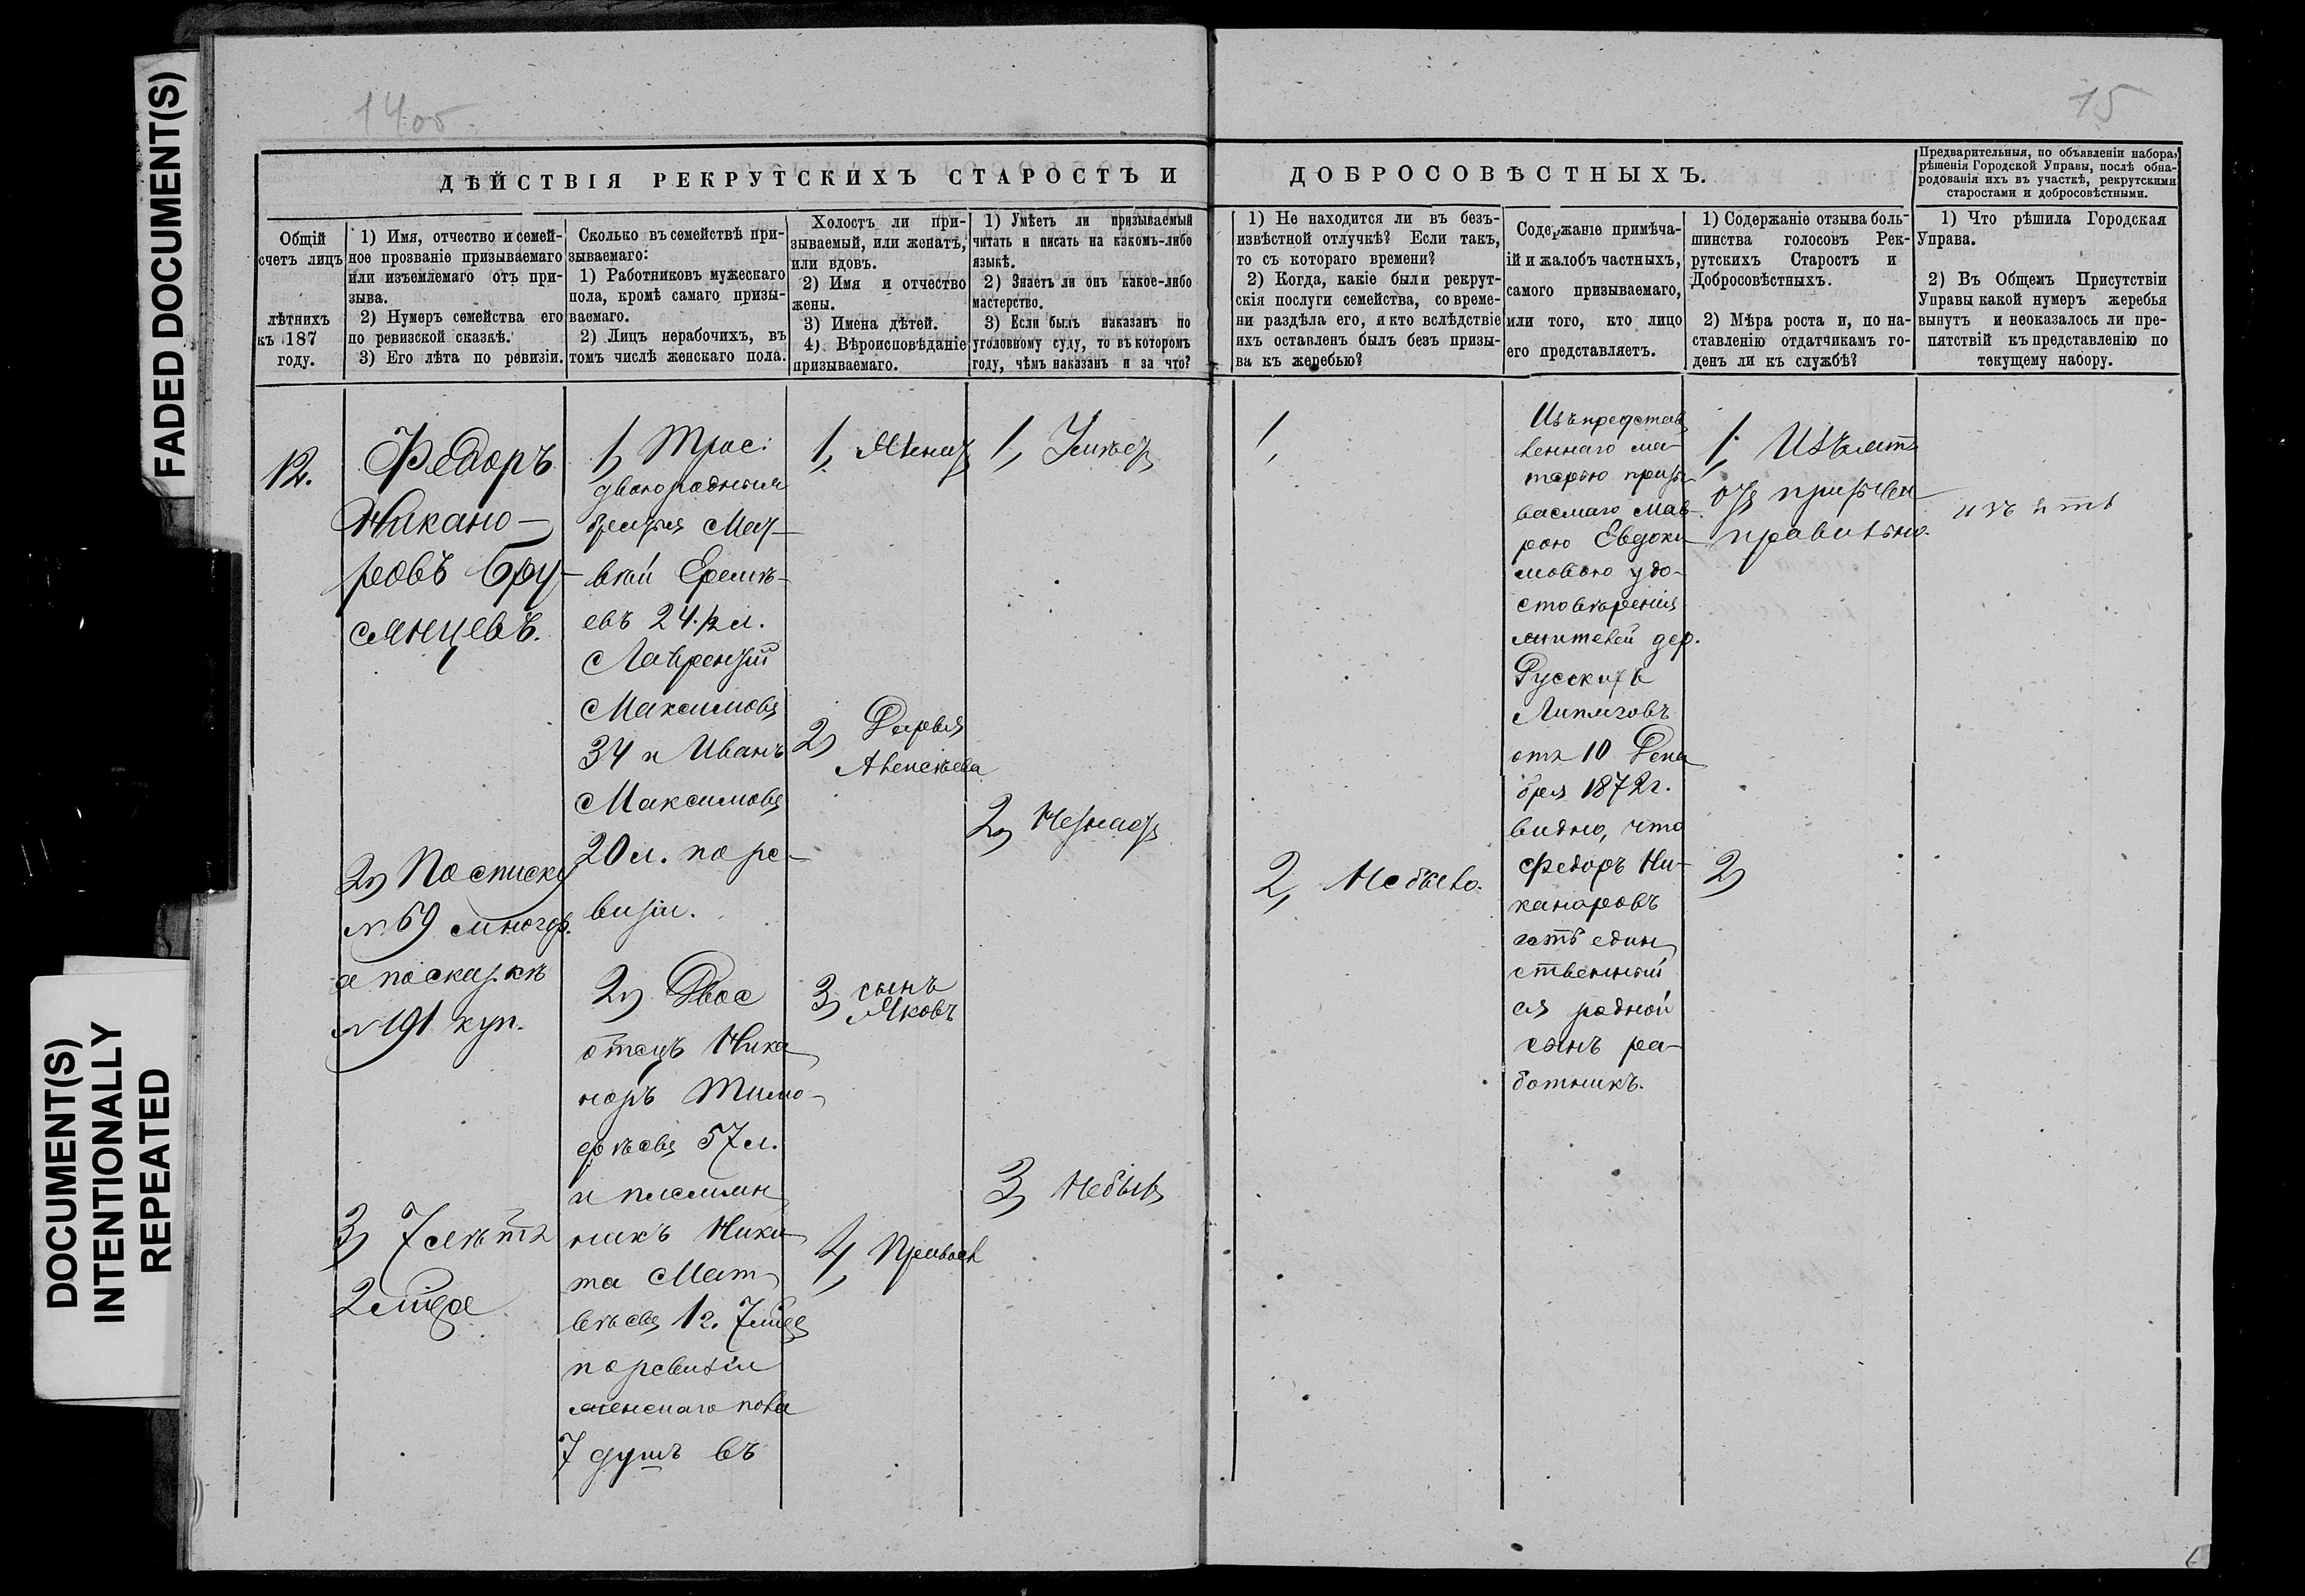 FADED DOCUMENT(S)
DOCUMENT(S)
INTENTIONALLY
REPEATED
14об.
15
ДѢЙСТВІЯ РЕКРУТСКИХЪ СТАРОСТЪ И
ДОБРОСОВѢСТНЫХЪ.
Предварительныя, по объявленіи набора,
рѣшенія Городской Управы, послѣ обна-
родованія ихъ въ участкѣ, рекрутскими
старостами и добросовѣстными.
Общій
счетъ лицъ
лѣтнихъ
къ 187
году.
1) Имя, отчество и семей-
ное прозваніе призываемаго
или изъемлемаго отъ при-
зыва.
2) Нумеръ семейства его
по ревизской сказкѣ.
3) Его лѣта по ревизіи.
Сколько въ семействѣ при-
зываемаго:
1) Работниковъ мужескаго
пола, кромѣ самаго призы-
ваемаго.
2) Лицъ нерабочихъ, въ
томъ числѣ женскаго пола.
Холостъ ли при-
зываемый, или женатъ,
или вдовъ.
2) Имя и отчество
жены.
3) Имена дѣтей.
4) Вѣроисповѣданіе
призываемаго.
1) Умѣетъ ли призываемый
читать и писать на какомъ-либо
языкѣ.
2) Знаетъ ли онъ какое-либо
мастерство.
3) Если былъ наказанъ по
уголовному суду, то въ которомъ
году, чѣмъ наказанъ и за что?
1) Не находится ли въ безъ-
извѣстной отлучкѣ? Если такъ,
то съ котораго времени?
2) Когда, какіе были рекрут-
скія послуги семейства, со време-
ни раздѣла его, и кто вслѣдствіе
ихъ оставленъ былъ безъ призы-
ва къ жеребью?
Содержаніе примѣча-
ій и жалобъ частныхъ,
самого призываемаго,
или того, кто лицо
его представляетъ.
1) Содержаніе отзыва боль-
шинства голосовъ Рек-
рутскихъ Старостъ и
Добросовѣстныхъ.
2) Мѣра роста и, по на-
ставленію отдатчикамъ го-
денъ ли къ службѣ?
1) Что рѣшила Городская
Управа.
2) Въ Общемъ Присутствіи
Управы какой нумеръ жеребья
вынутъ и неоказалось ли пре-
пятствій къ представленію по
текущему набору.
12.
Федоръ
Никано-
ровъ Бру-
сянцевъ.
2) По списку
№ 69 многор.
а по сказкѣ
№ 191 куп.
3) 7 лѣтъ
2 м͠ца
1) Трое:
двоюродныя
братья Мат-
вѣй Ерем​ѣ-
евъ 24 1/2 л.
Лаврентій
Максимовъ
34 и Иванъ
Максимовъ
20 л. по ре-
визіи.
2) Двое
отецъ Ника
норъ Тимо-
фѣевъ 57 л.
и племян
никъ Ники
та Мат
вѣевъ 12. 7 мцъ
по ревизіи
женскаго пола
7 душъ въ
1, Женатъ
2) Дарья
Алексѣева
3) сынъ
Яковъ
4, Правосл
1, Умѣетъ
2) Незнаетъ
3) Небылъ
1,
2, Небыло.
Изъ представ
леннаго ма-
терью призы
ваемаго Мав-
рою Евдоки
мовою удо-
стовѣренія
жителей дер.
Русскихъ
Липяговъ
отъ 10 Дека
бря 1872 г.
видно, что
Федоръ Ни-
каноровъ
есть един
ственный
ея родной
сынъ ра-
ботникъ.
1, Изъять
отъ призыва
правильно.
2)
изъять